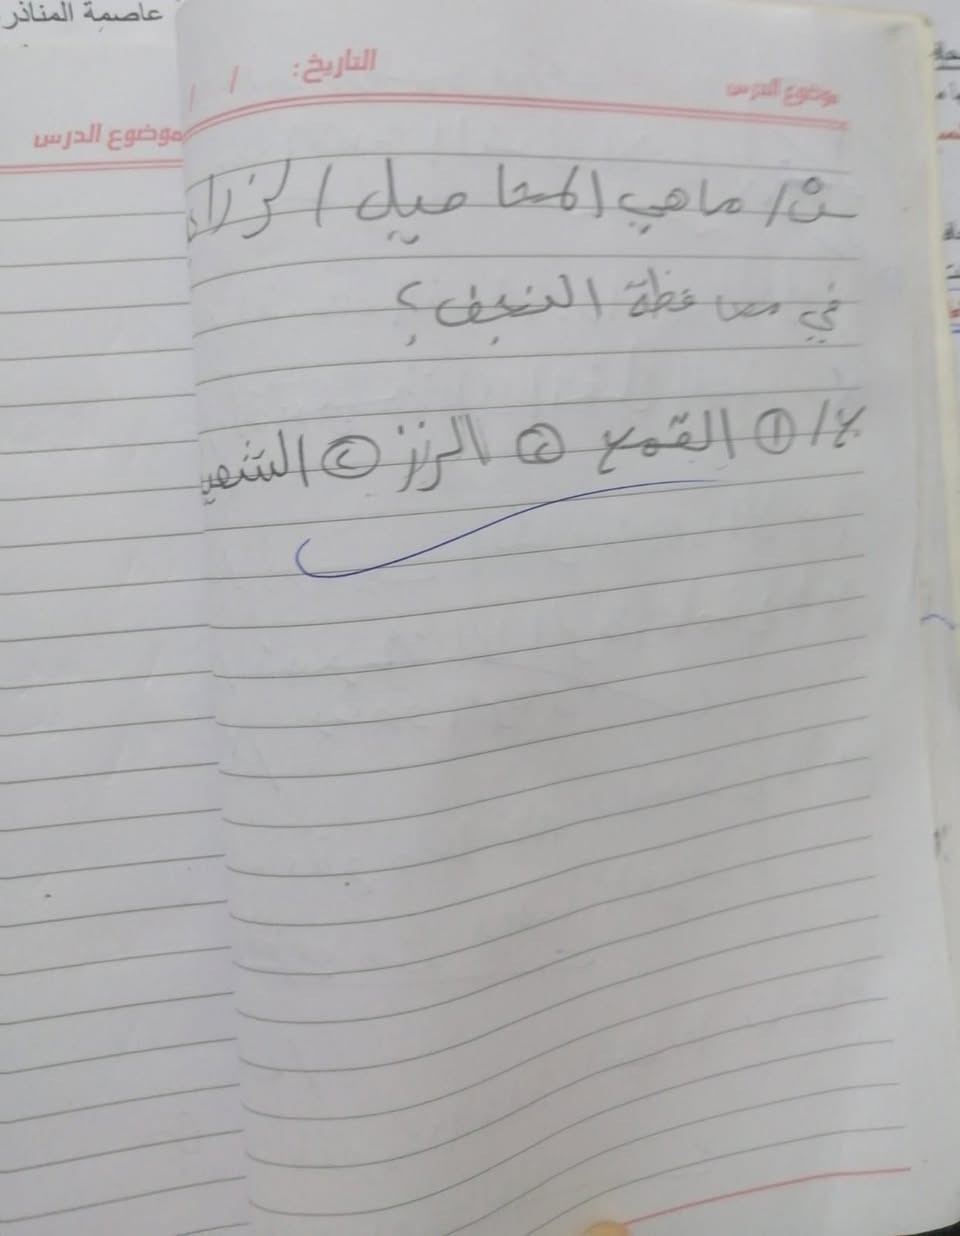 عاصمة المناذر
التاريخ: / /
موضوع الدرس
موضوع الدرس
س/ ماهي المحاصيل الزرا
في محافظة النجف؟
ج/ ① القمح ② الرز ③ الشعير